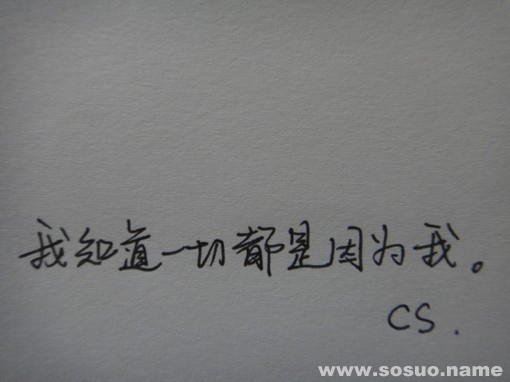 我知道一切都是因为我。
CS.
www.sosuo.name